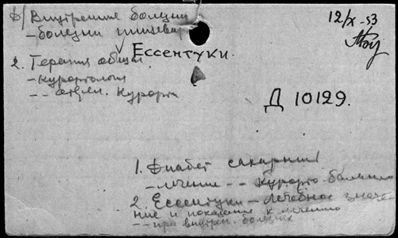 б/ Внутренние болезни
12/IX-53
- болезни пищевар
Ессентуки.
2. Терапия общая.
- курортология
-- отдельн. Курорты
Д 10129.
1. Диабет сахарный
- лечение -- курорто-бальнео
2. Ессентуки - Лечебное значе-
ние и показания к лечению
-- при внутрен. болезнях